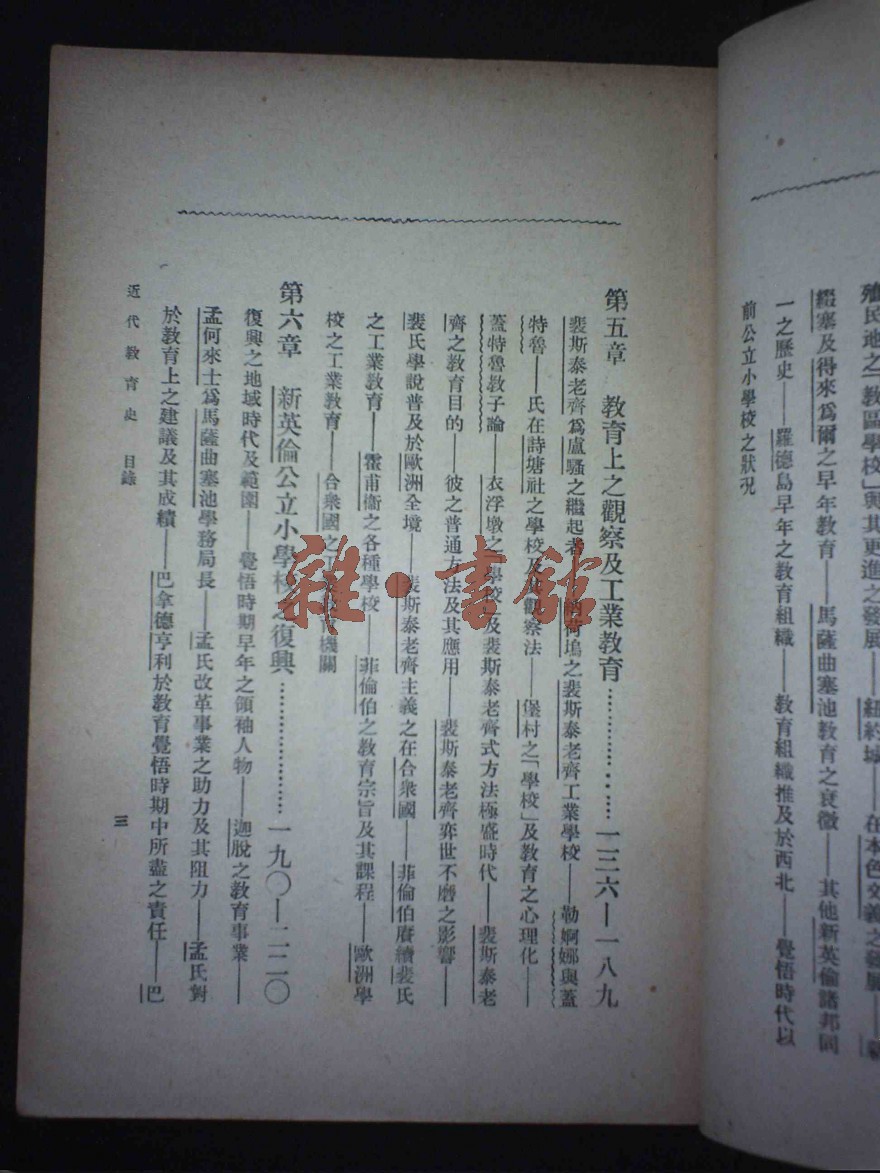 殖民地之「教區學校」與其更進之發展——紐約城——在本色文義之發展——
綴塞及得來爲爾之早年教育——馬薩曲塞池教育之衰微——其他新英倫諸邦同
一之歷史——羅德島早年之教育組織——教育組織推及於西北——覺悟時代以
前公立小學校之狀况
第五章 教育上之觀察及工業教育…………一三六—一八九
裴斯泰老齊爲盧騷之繼起者——荷塢之裴斯泰老齊工業學校——勒婀娜與蓋
特魯——氏在詩塘社之學校及其觀察法——堡村之「學校」及教育之心理化——
蓋特魯教子論——衣浮墩之「學校」及裴斯泰老齊式方法極盛時代——裴斯泰老
齊之教育目的——彼之普通方法及其應用——裴斯泰老齊弈世不磨之影響——
裴氏學說普及於歐洲全境——裴斯泰老齊主義之在合衆國——菲倫伯賡續裴氏
之工業教育——霍甫衞之各種學校——菲倫伯之教育宗旨及其課程——歐洲學
校之工業教育——合衆國之工業教育機關
第六章 新英倫公立小學校之復興…………一九〇—二二〇
復興之地域時代及範圍——覺悟時期早年之領袖人物——迦脫之教育事業——
孟何來士爲馬薩曲塞池學務局長——孟氏改革事業之助力及其阻力——孟氏對
於教育上之建議及其成績——巴拿德亨利於教育覺悟時期中所盡之責任——巴
近代教育史 目錄
三
雜·書館